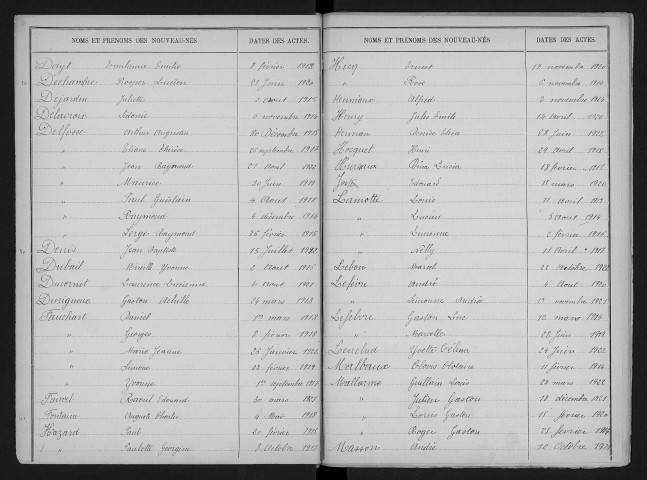 NOMS ET PRÉNOMS DES NOUVEAU-NÉS DATES DES ACTES.
Dayt 8 février 1913
Dechambre Roger Lucien 21 Juin 1920
Dejardin Juliette 1 Août 1915
Delacroix Sidonie 6 novembre 1914
Delfosse Arthur Augustin 20 Décembre 1918
" Eliane Thérèse 26 septembre 1917
" Jean Raymond 21 Août 1922
" Maurice 20 Juin 1919
" Paul Guislain 4 Août 1921
" Raymond 4 décembre 1914
" Serge Raymond 26 février 1916
Denis Jean Baptiste 15 Juillet 1922
Dubail Mireille Yvonne 2 Août 1915
Ducornet Laurence Lucienne 6 Août 1921
Durigneux Gaston Achille 24 mars 1913
Fauchart Daniel 1er mars 1913
" Georges 8 février 1918
" Marie Jeanne 26 Janvier 1922
" Simone 22 février 1919
" Yvonne 1er septembre 1914
Fauvel Raoul Edouard 30 mars 1921
Fontaine Auguste Charles 4 Mai 1918
Hazard Paul 20 février 1915
" Paulette Georgina 8 Octobre 1913
NOMS ET PRÉNOMS DES NOUVEAU-NÉS DATES DES ACTES.
Hecq Ernest 19 novembre 1920
" Rose 6 novembre 1914
Henniaux Alfred 2 novembre 1914
Henry Jules Emile 14 Août 1920
Hennan Denise Elisa 28 Juin 1922
Hocquet Henri 24 Août 1918
Hursaux Lucien 18 février 1918
Edouard 11 mars 1920
Lamotte Louis 11 Août 1913
" Lucien 5 Août 1914
" Lucienne 2 février 1916
" Nelly 11 Août 1917
Lebon Marcel 22 Octobre 1922
Lefèvre André 4 Août 1920
" Simonne Andrée 13 novembre 1921
Lefebvre Gaston Luc 12 mars 1914
" Marcelle 22 Juin 1919
Yvette Célina 24 Juin 1922
Malbaux Clovis 11 février 1914
Mallarme Guillain Louis 22 mars 1922
" Julien Gaston 18 décembre 1921
" Louis Gaston 15 février 1920
" Roger Gaston 28 février 1914
Masson André 10 Octobre 1921